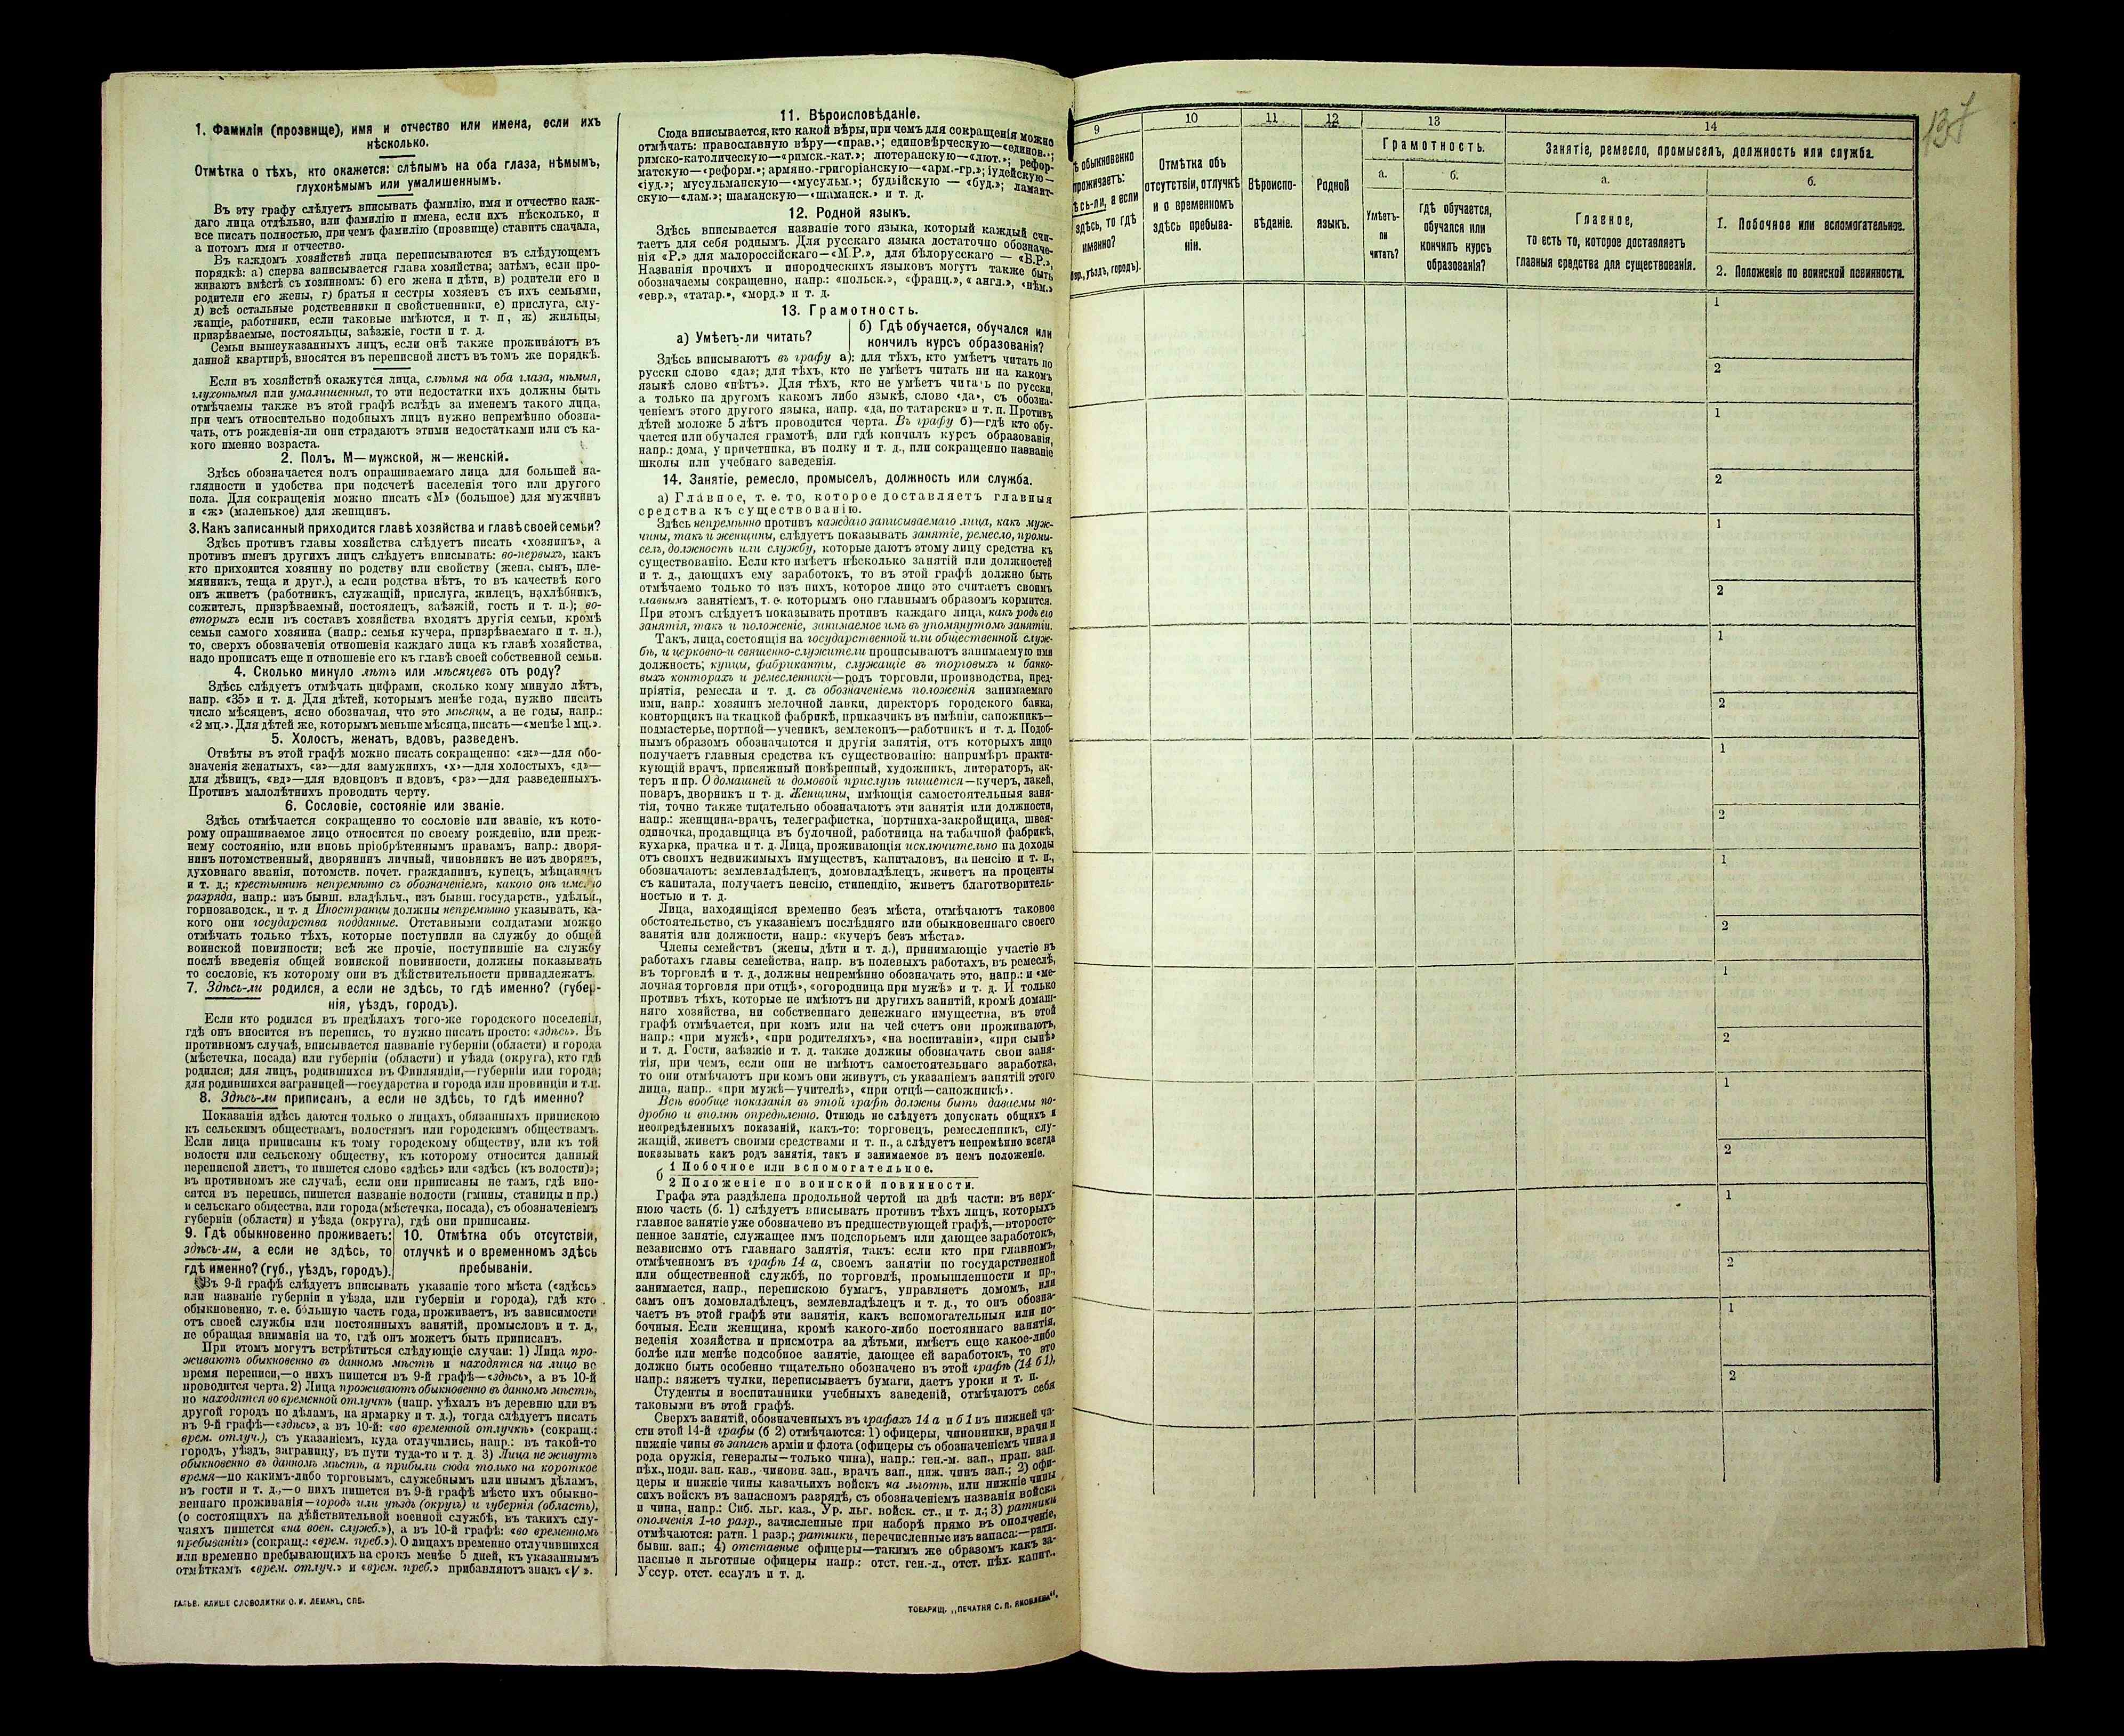 1. Фамилія (прозвище), имя и отчество или имена, если ихъ
нѣсколько.
Отмѣтка о тѣхъ, кто окажется: слѣпымъ на оба глаза, нѣмымъ,
глухонѣмымъ или умалишеннымъ.
Въ эту графу слѣдуетъ вписывать фамилію, имя и отчество каж-
даго лица отдѣльно, или фамилію и имена, если ихъ нѣсколько, и
все писать полностью, при чемъ фамилію (прозвище) ставить сначала,
а потомъ имя и отчество.
Въ каждомъ хозяйствѣ лица переписываются въ слѣдующемъ
порядкѣ: а) сперва записывается глава хозяйства; затѣмъ, если про-
живаютъ вмѣстѣ съ хозяиномъ: б) его жена и дѣти, в) родители его и
родители его жены, г) братья и сестры хозяевъ съ ихъ семьями,
д) всѣ остальные родственники и свойственники, е) прислуга, слу-
жащіе, работники, если таковые имѣются, и т. п, ж) жильцы,
призрѣваемые, постояльцы, заѣзжіе, гости и т. д.
Семьи вышеуказанныхъ лицъ, если онѣ также проживаютъ въ
данной квартирѣ, вносятся въ переписной листъ въ томъ же порядкѣ.
Если въ хозяйствѣ окажутся лица, слѣпыя на оба глаза, нѣмыя,
глухонѣмыя или умалишенныя, то эти недостатки ихъ должны быть
отмѣчаемы также въ этой графѣ вслѣдъ за именемъ такого лица,
при чемъ относительно подобныхъ лицъ нужно непремѣнно обозна-
чать, отъ рожденія-ли они страдаютъ этими недостатками или съ ка-
кого именно возраста.
2. Полъ. М—мужской, ж—женскій.
Здѣсь обозначается полъ опрашиваемаго лица для большей на-
глядности и удобства при подсчетѣ населенія того или другого
пола. Для сокращенія можно писать «М» (большое) для мужчинъ
и «ж» (маленькое) для женщинъ.
3. Какъ записанный приходится главѣ хозяйства и главѣ своей семьи?
Здѣсь противъ главы хозяйства слѣдуетъ писать «хозяинъ», а
противъ именъ другихъ лицъ слѣдуетъ вписывать: во-первыхъ, какъ
кто приходится хозяину по родству или свойству (жена, сынъ, пле-
мянникъ, теща и друг.), а если родства нѣтъ, то въ качествѣ кого
онъ живетъ (работникъ, служащій, прислуга, жилецъ, нахлѣбникъ,
сожитель, призрѣваемый, постоялецъ, заѣзжій, гость и т. п.); во-
вторыхъ если въ составъ хозяйства входятъ другія семьи, кромѣ
семьи самого хозяина (напр.: семья кучера, призрѣваемаго и т. п.),
то, сверхъ обозначенія отношенія каждаго лица къ главѣ хозяйства,
надо прописать еще и отношеніе его къ главѣ своей собственной семьи.
4. Сколько минуло лѣтъ или мѣсяцевъ отъ роду?
Здѣсь слѣдуетъ отмѣчать цифрами, сколько кому минуло лѣтъ,
напр. «35» и т. д. Для дѣтей, которымъ менѣе года, нужно писать
число мѣсяцевъ, ясно обозначая, что это мѣсяцы, а не годы, напр.:
«2 мц.». Для дѣтей же, которымъ меньше мѣсяца, писать—«менѣе 1 мц.».
5. Холостъ, женатъ, вдовъ, разведенъ.
Отвѣты въ этой графѣ можно писать сокращенно: «ж»—для обо-
значенія женатыхъ, «з»—для замужнихъ, «х»—для холостыхъ, «д»—
для дѣвицъ, «вд»—для вдовцовъ и вдовъ, «рз»—для разведенныхъ.
Противъ малолѣтнихъ проводить черту.
6. Сословіе, состояніе или званіе.
Здѣсь отмѣчается сокращенно то сословіе или званіе, къ кото-
рому опрашиваемое лицо относится по своему рожденію, или преж-
нему состоянію, или вновь пріобрѣтеннымъ правамъ, напр.: дворя-
нинъ потомственный, дворянинъ личный, чиновникъ не изъ дворянъ,
духовнаго званія, потомств. почет. гражданинъ, купецъ, мѣщанинъ
и т. д.; крестьянинъ непремѣнно съ обозначеніемъ, какого онъ именно
разряда, напр.: изъ бывш. владѣльч., изъ бывш. государств., удѣльн.,
горнозаводск., и т. д Иностранцы должны непремѣнно указывать, ка-
кого они государства подданные. Отставными солдатами можно
отмѣчать только тѣхъ, которые поступили на службу до общей
воинской повинности; всѣ же прочіе, поступившіе на службу
послѣ введенія общей воинской повинности, должны показывать
то сословіе, къ которому они въ дѣйствительности принадлежатъ.
7. Здѣсь-ли родился, а если не здѣсь, то гдѣ именно? (губер-
нія, уѣздъ, городъ).
Если кто родился въ предѣлахъ того-же городского поселенія,
гдѣ онъ вносится въ перепись, то нужно писать просто: «здѣсь». Въ
противномъ случаѣ, вписывается названіе губерніи (области) и города
(мѣстечка, посада) или губерніи (области) и уѣзда (округа), кто гдѣ
родился; для лицъ, родившихся въ Финляндіи,—губерніи или города;
для родившихся заграницей—государства и города или провинціи и т.п.
8. Здѣсь-ли приписанъ, а если не здѣсь, то гдѣ именно?
Показанія здѣсь даются только о лицахъ, обязанныхъ припискою
къ сельскимъ обществамъ, волостямъ или городскимъ обществамъ.
Если лица приписаны къ тому городскому обществу, или къ той
волости или сельскому обществу, къ которому относится данный
переписной листъ, то пишется слово «здѣсь» или «здѣсь (къ волости)»;
въ противномъ же случаѣ, если они приписаны не тамъ, гдѣ вно-
сятся въ перепись, пишется названіе волости (гмины, станицы и пр.)
и сельскаго общества, или города (мѣстечка, посада), съ обозначеніемъ
губерніи (области) и уѣзда (округа), гдѣ они приписаны.
9. Гдѣ обыкновенно проживаетъ:
здѣсь-ли, а если не здѣсь, то
гдѣ именно? (губ., уѣздъ, городъ).
10. Отмѣтка объ отсутствіи,
отлучкѣ и о временномъ здѣсь
пребываніи.
Въ 9-й графѣ слѣдуетъ вписывать указаніе того мѣста («здѣсь»
или названіе губерніи и уѣзда, или губерніи и города), гдѣ кто
обыкновенно, т. е. бо́льшую часть года, проживаетъ, въ зависимости
отъ своей службы или постоянныхъ занятій, промысловъ и т. д.,
не обращая вниманія на то, гдѣ онъ можетъ быть приписанъ.
При этомъ могутъ встрѣтиться слѣдующіе случаи: 1) Лица про-
живаютъ обыкновенно въ данномъ мѣстѣ и находятся на лицо во
время переписи,—о нихъ пишется въ 9-й графѣ—«здѣсь», а въ 10-й
проводится черта. 2) Лица проживаютъ обыкновенно въ данномъ мѣстѣ,
но находятся во временной отлучкѣ (напр. уѣхалъ въ деревню или въ
другой городъ по дѣламъ, на ярмарку и т. д.), тогда слѣдуетъ писать
въ 9-й графѣ—«здѣсь», а въ 10-й: «во временной отлучкѣ» (сокращ.:
врем. отлуч.), съ указаніемъ, куда отлучились, напр.: въ такой-то
городъ, уѣздъ, заграницу, въ пути туда-то и т. д. 3) Лица не живутъ
обыкновенно въ данномъ мѣстѣ, а прибыли сюда только на короткое
время—по какимъ-либо торговымъ, служебнымъ или инымъ дѣламъ,
въ гости и т. д.,—о нихъ пишется въ 9-й графѣ мѣсто ихъ обыкно-
веннаго проживанія—городъ или уѣздъ (округъ) и губернія (область),
(о состоящихъ на дѣйствительной военной службѣ, въ такихъ слу-
чаяхъ пишется «на воен. служб.»), а въ 10-й графѣ: «во временномъ
пребываніи» (сокращ.: «врем. преб.»). О лицахъ временно отлучившихся
или временно пребывающихъ на срокъ менѣе 5 дней, къ указаннымъ
отмѣткамъ «врем. отлуч.» и «врем. преб.» прибавляютъ знакъ «V».
ГАЛЬВ. КЛИШЕ СЛОВОЛИТНИ О. И. ЛЕМАНЪ, СПБ.
11. Вѣроисповѣданіе.
Сюда вписывается, кто какой вѣры, при чемъ для сокращенія можно
отмѣчать: православную вѣру—«прав.»; единовѣрческую—«единов.»;
римско-католическую—«римск.-кат.»; лютеранскую—«лют.»; рефор-
матскую—«реформ.»; армяно-григоріанскую—«арм.-гр.»; іудейскую—
«іуд.»; мусульманскую—«мусульм.»; буддійскую — «буд.»; ламаит-
скую—«лам.»; шаманскую—«шаманск.» и т. д.
12. Родной языкъ.
Здѣсь вписывается названіе того языка, который каждый счи-
таетъ для себя роднымъ. Для русскаго языка достаточно обозначе-
нія «Р.» для малороссійскаго—«М.Р.», для бѣлорусскаго — «Б.Р.»,
Названія прочихъ и инородческихъ языковъ могутъ также быть
обозначаемы сокращенно, напр.: «польск.», «франц.», «англ.», «нѣм.»
«евр.», «татар.», «морд.» и т. д.
13. Грамотность.
а) Умѣетъ-ли читать?
б) Гдѣ обучается, обучался или
кончилъ курсъ образованія?
Здѣсь вписываютъ въ графу а): для тѣхъ, кто умѣетъ читать по
русски слово «да»; для тѣхъ, кто не умѣетъ читать ни на какомъ
языкѣ слово «нѣтъ». Для тѣхъ, кто не умѣетъ читать по русски,
а только на другомъ какомъ либо языкѣ, слово «да», съ обозна-
ченіемъ этого другого языка, напр. «да, по татарски» и т. п. Противъ
дѣтей моложе 5 лѣтъ проводится черта. Въ графу б)—гдѣ кто обу-
чается или обучался грамотѣ, или гдѣ кончилъ курсъ образованія,
напр.: дома, у причетника, въ полку и т. д., или сокращенно названіе
школы или учебнаго заведенія.
14. Занятіе, ремесло, промыселъ, должность или служба.
а) Главное, т. е. то, которое доставляетъ главныя
средства къ существованію.
Здѣсь непремѣнно противъ каждаго записываемаго лица, какъ муж-
чины, такъ и женщины, слѣдуетъ показывать занятіе, ремесло, промы-
селъ, должность или службу, которые даютъ этому лицу средства къ
существованію. Если кто имѣетъ нѣсколько занятій или должностей
и т. д., дающихъ ему заработокъ, то въ этой графѣ должно быть
отмѣчаемо только то изъ нихъ, которое лицо это считаетъ своимъ
главнымъ занятіемъ, т. е. которымъ оно главнымъ образомъ кормится.
При этомъ слѣдуетъ показывать противъ каждаго лица, какъ родъ его
занятія, такъ и положеніе, занимаемое имъ въ упомянутомъ занятіи.
Такъ, лица, состоящія на государственной или общественной служ-
бѣ, и церковно-и священно-служители прописываютъ занимаемую ими
должность; купцы, фабриканты, служащіе въ торговыхъ и банко-
выхъ конторахъ и ремесленники—родъ торговли, производства, пред-
пріятія, ремесла и т. д. съ обозначеніемъ положенія занимаемаго
ими, напр.: хозяинъ мелочной лавки, директоръ городского банка,
конторщикъ на ткацкой фабрикѣ, приказчикъ въ имѣніи, сапожникъ—
подмастерье, портной—ученикъ, землекопъ—работникъ и т. д. Подоб-
нымъ образомъ обозначаются и другія занятія, отъ которыхъ лицо
получаетъ главныя средства къ существованію: напримѣръ практи-
кующій врачъ, присяжный повѣренный, художникъ, литераторъ, ак-
теръ и пр. О домашней и домовой прислугѣ пишется—кучеръ, лакей,
поваръ, дворникъ и т. д. Женщины, имѣющія самостоятельныя заня-
тія, точно также тщательно обозначаютъ эти занятія или должности,
напр.: женщина-врачъ, телеграфистка, портниха-закройщица, швея-
одиночка, продавщица въ булочной, работница на табачной фабрикѣ,
кухарка, прачка и т. д. Лица, проживающія исключительно на доходы
отъ своихъ недвижимыхъ имуществъ, капиталовъ, на пенсію и т. п.,
обозначаютъ: землевладѣлецъ, домовладѣлецъ, живетъ на проценты
съ капитала, получаетъ пенсію, стипендію, живетъ благотворитель-
ностью и т. д.
Лица, находящіяся временно безъ мѣста, отмѣчаютъ таковое
обстоятельство, съ указаніемъ послѣдняго или обыкновеннаго своего
занятія или должности, напр.: «кучеръ безъ мѣста».
Члены семействъ (жены, дѣти и т. д.), принимающіе участіе въ
работахъ главы семейства, напр. въ полевыхъ работахъ, въ ремеслѣ,
въ торговлѣ и т. д., должны непремѣнно обозначать это, напр.: и «ме-
лочная торговля при отцѣ», «огородница при мужѣ» и т. д. И только
противъ тѣхъ, которые не имѣютъ ни другихъ занятій, кромѣ домаш-
няго хозяйства, ни собственнаго денежнаго имущества, въ этой
графѣ отмѣчается, при комъ или на чей счетъ они проживаютъ,
напр.: «при мужѣ», «при родителяхъ», «на воспитаніи», «при сынѣ»
и т. д. Гости, заѣзжіе и т. д. также должны обозначать свои заня-
тія, при чемъ, если они не имѣютъ самостоятельнаго заработка,
то они отмѣчаютъ при комъ они живутъ, съ указаніемъ занятій этого
лица, напр.. «при мужѣ—учителѣ», «при отцѣ—сапожникѣ».
Всѣ вообще показанія въ этой графѣ должны быть даваемы по-
дробно и вполнѣ опредѣленно. Отнюдь не слѣдуетъ допускать общихъ и
неопредѣленныхъ показаній, какъ-то: торговецъ, ремесленникъ, слу-
жащій, живетъ своими средствами и т. п., а слѣдуетъ непремѣнно всегда
показывать какъ родъ занятія, такъ и занимаемое въ немъ положеніе.
б 1 Побочное или вспомогательное.
2 Положеніе по воинской повинности.
Графа эта раздѣлена продольной чертой на двѣ части: въ верх-
нюю часть (б. 1) слѣдуетъ вписывать противъ тѣхъ лицъ, которыхъ
главное занятіе уже обозначено въ предшествующей графѣ,—второсте-
пенное занятіе, служащее имъ подспорьемъ или дающее заработокъ,
независимо отъ главнаго занятія, такъ: если кто при главномъ,
отмѣченномъ въ графѣ 14 а, своемъ занятіи по государственной
или общественной службѣ, по торговлѣ, промышленности и пр.,
занимается, напр., перепискою бумагъ, управляетъ домомъ, или
самъ онъ домовладѣлецъ, землевладѣлецъ и т. д., то онъ обозна-
чаетъ въ этой графѣ эти занятія, какъ вспомогательныя или по-
бочныя. Если женщина, кромѣ какого-либо постояннаго занятія,
веденія хозяйства и присмотра за дѣтьми, имѣетъ еще какое-либо
болѣе или менѣе подсобное занятіе, дающее ей заработокъ, то это
должно быть особенно тщательно обозначено въ этой графѣ (14 б 1),
напр.: вяжетъ чулки, переписываетъ бумаги, даетъ уроки и т. п.
Студенты и воспитанники учебныхъ заведеній, отмѣчаютъ себя
таковыми въ этой графѣ.
Сверхъ занятій, обозначенныхъ въ графахъ 14 а и б 1 въ нижней ча-
сти этой 14-й графы (б 2) отмѣчаются: 1) офицеры, чиновники, врачи и
нижніе чины въ запасѣ арміи и флота (офицеры съ обозначеніемъ чина и
рода оружія, генералы—только чина), напр.: ген.-м. зап., прап. зап.
пѣх., подп. зап. кав., чиновн. зап., врачъ зап., ниж. чинъ зап.; 2) офи-
церы и нижніе чины казачьихъ войскъ на льготѣ, или нижніе чины
сихъ войскъ въ запасномъ разрядѣ, съ обозначеніемъ названія войска
и чина, напр.: Сиб. льг. каз., Ур. льг. войск. ст., и т. д.; 3) ратники
ополченія 1-го разр., зачисленные при наборѣ прямо въ ополченіе,
отмѣчаются: ратн. 1 разр.; ратники, перечисленные изъ запаса:—ратн.
бывш. зап.; 4) отставные офицеры—такимъ же образомъ какъ за-
пасные и льготные офицеры напр.: отст. ген.-л., отст. пѣх. капит.,
Уссур. отст. есаулъ и т. д.
ТОВАРИЩ. „ПЕЧАТНЯ С. П. ЯКОВЛЕВА“.
137
9
10
11
12
13
14
обыкновенно
проживаетъ:
сь-ли, а если
здѣсь, то гдѣ
именно?
уѣздъ, городъ).
Отмѣтка объ
отсутствіи, отлучкѣ
и о временномъ
здѣсь пребыва-
ніи.
Вѣроиспо-
вѣданіе.
Родной
языкъ.
Грамотность.
а.
б.
Умѣетъ-
ли
читать?
Гдѣ обучается,
обучался или
кончилъ курсъ
образованія?
Занятіе, ремесло, промыселъ, должность или служба.
а.
б.
Главное,
то есть то, которое доставляетъ
главныя средства для существованія.
1. Побочное или вспомогательное.
2. Положеніе по воинской повинности.
1
2
1
2
1
2
1
2
1
2
1
2
1
2
1
2
1
2
1
2